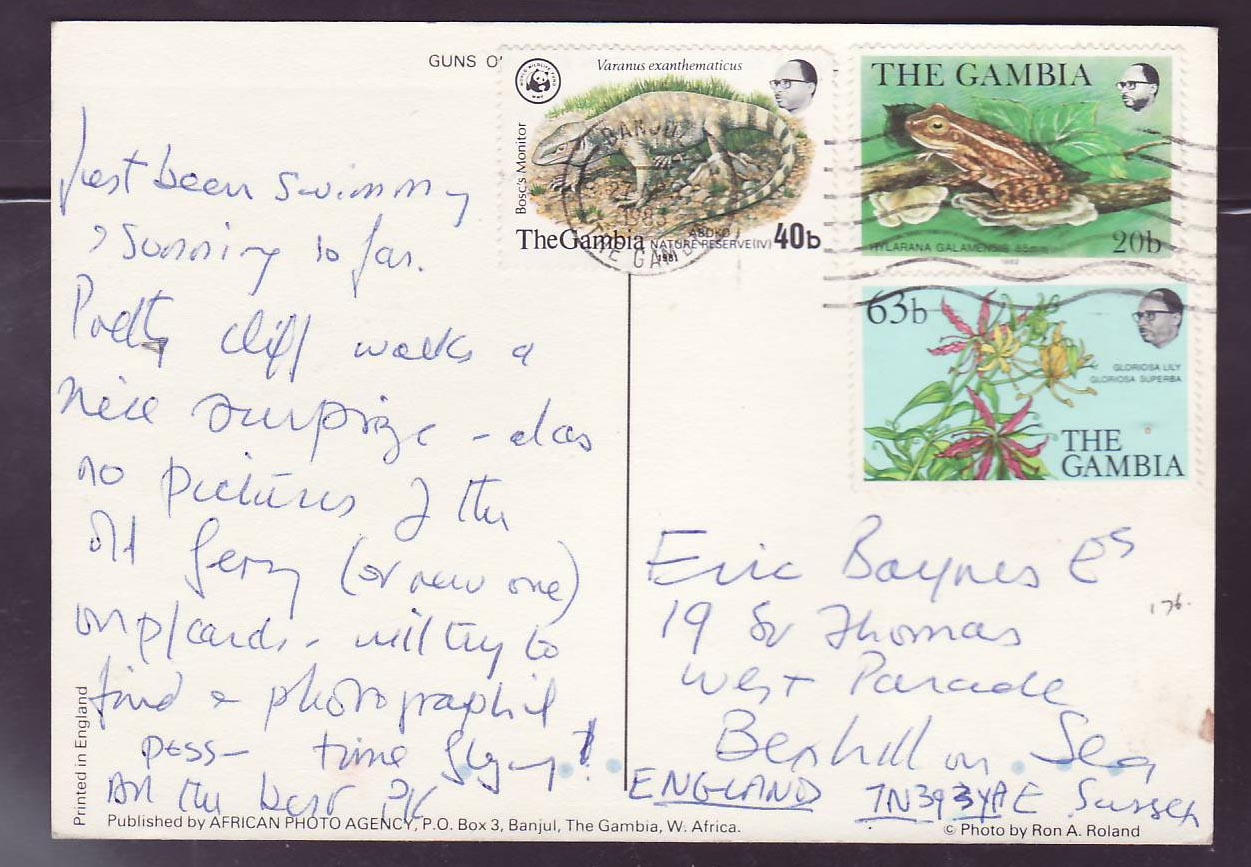 GUNS O'
Varanus exanthematicus
WORLD WILDLIFE FUND
WWF
Bosc's Monitor
The Gambia
ABUKO
NATURE RESERVE (IV)
1981
40b
BANJUL
THE GAMBIA
THE GAMBIA
HYLARANA GALAMENSIS
1982
20b
63b
GLORIOSA LILY
GLORIOSA SUPERBA
THE
GAMBIA
Just been swimming
& sunning so far.
Pretty cliff walks a
nice surprize - alas
no pictures of the
old ferry (or new one)
on p/cards - will try to
find a photographic
time flying!
All the best PK
Eric Baynes Es
19 St Thomas
West Parade
Bexhill on Sea
ENGLAND TN39 3YA E Sussex
176.
Printed in England
Published by AFRICAN PHOTO AGENCY, P.O. Box 3, Banjul, The Gambia, W. Africa.
© Photo by Ron A. Roland